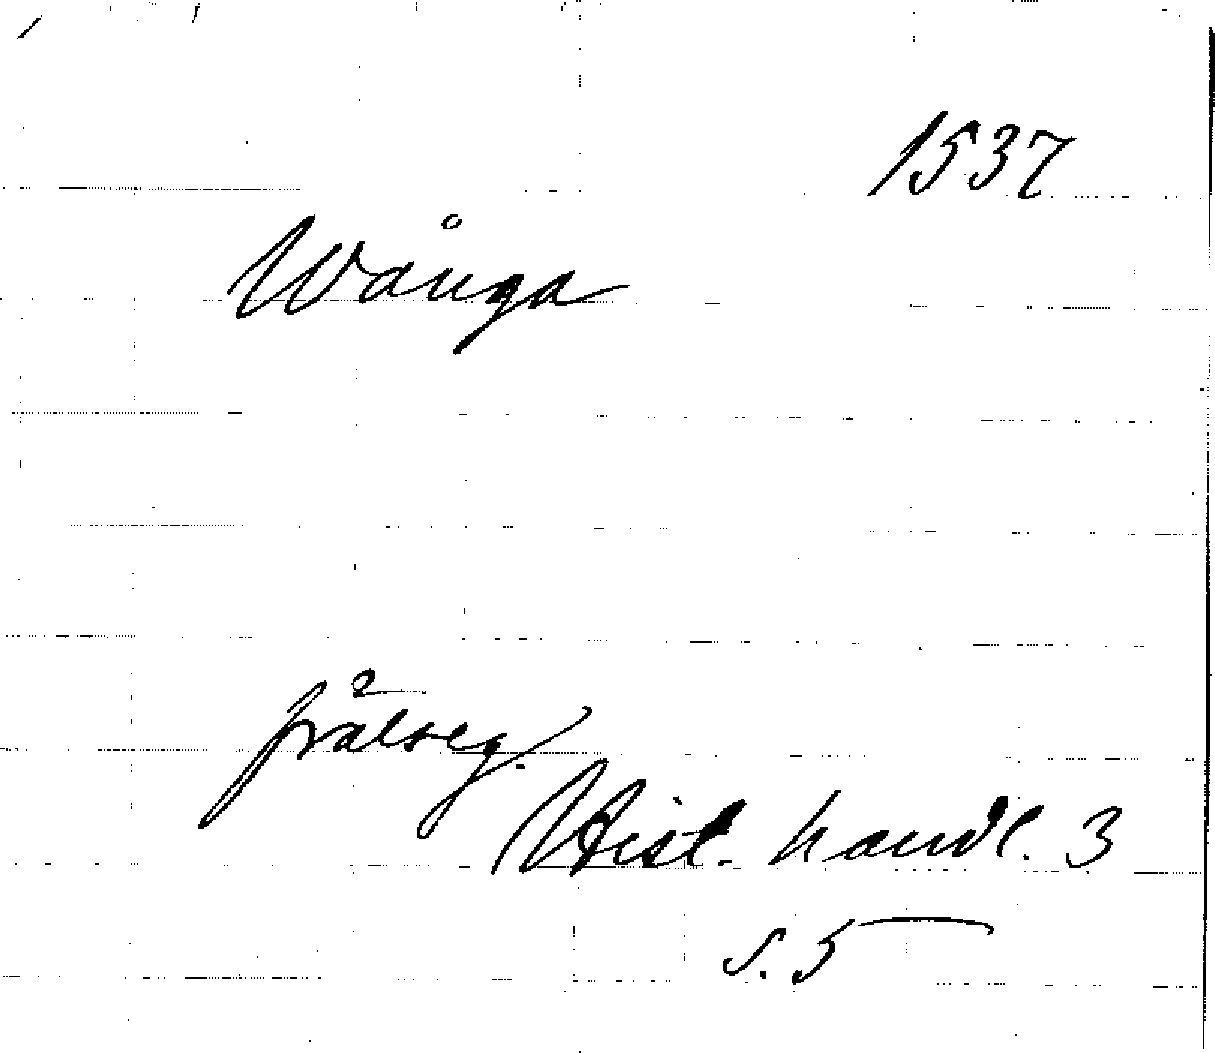 1537
Wånga
frälseg.
Hist. handl. 3
s. 5